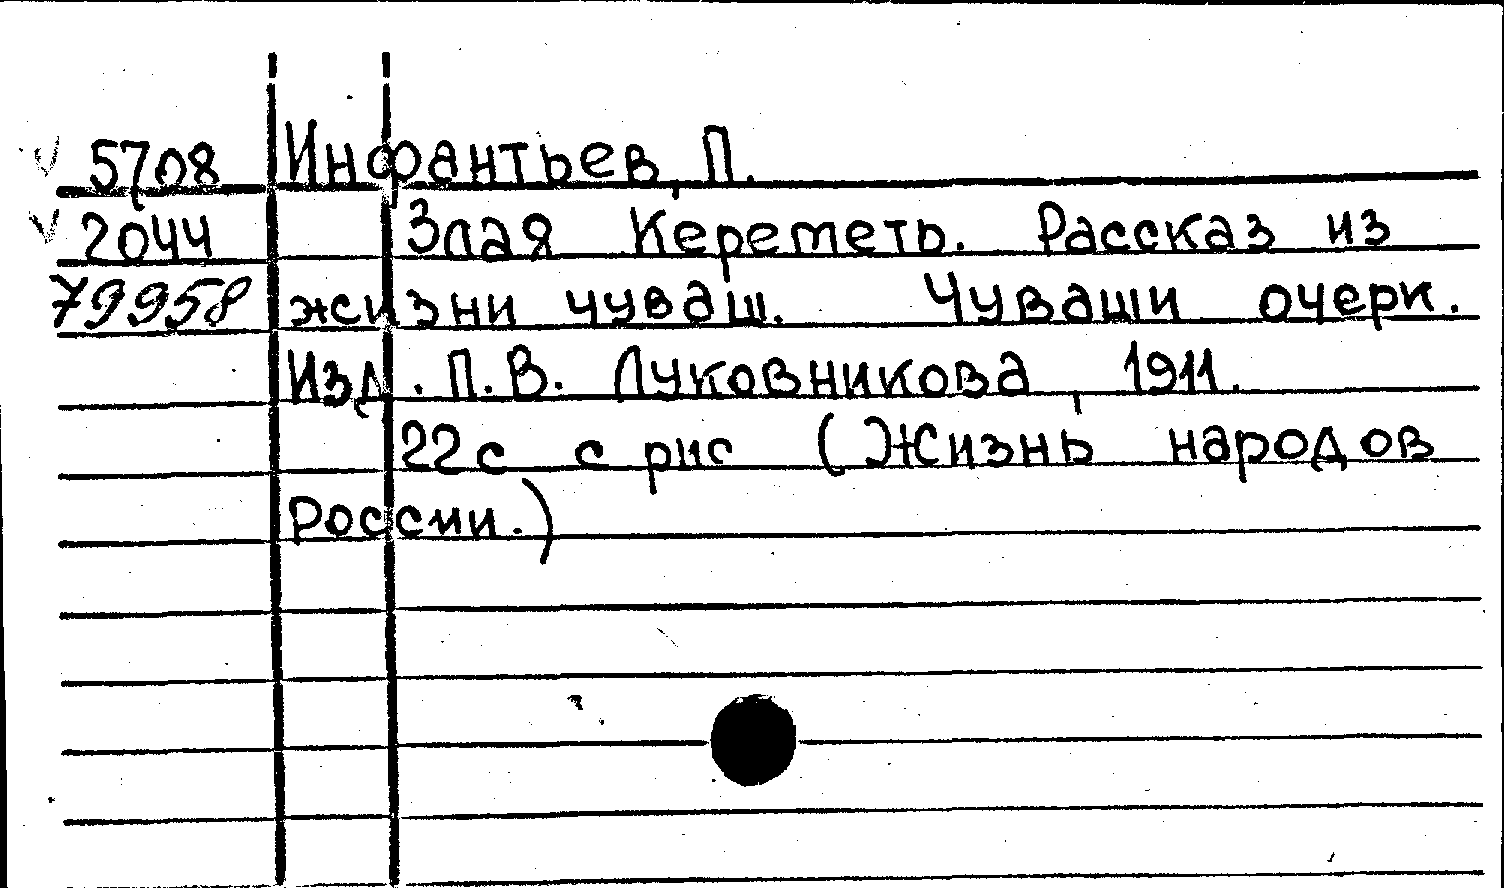 5708 Инфантьев, П.
2044 Злая Кереметь. Рассказ из
79958 жизни чуваш. Чуваши очерк.
Изд. П.В. Луковникова, 1911.
22с с рис (Жизнь народов
России.)